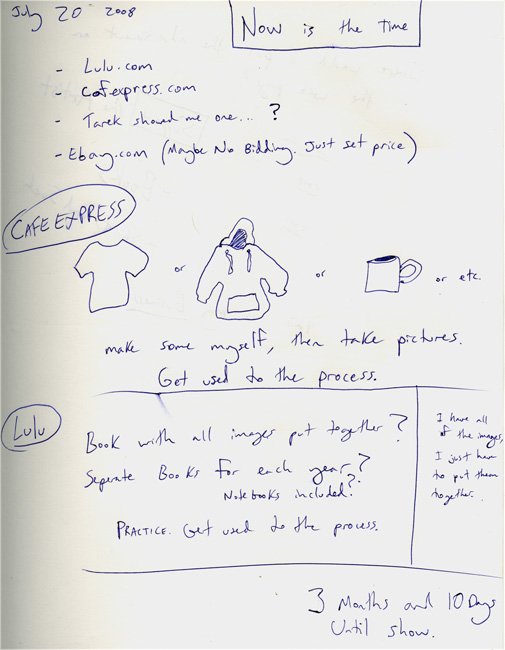 July 20 2008
Now is the time
- Lulu.com
- Cafexpress.com
- Tarek showed me one... ?
- Ebay.com (Maybe No Bidding. Just set price)
CAFE EXPRESS
or or or etc.
make some myself, then take pictures.
Get used to the process.
Lulu
Book with all images put together?
Seperate Books for each year?
Notebooks included?
PRACTICE. Get used to the process.
I have all
of the images,
I just have
to put them
together.
3 Months and 10 Days
Until show.